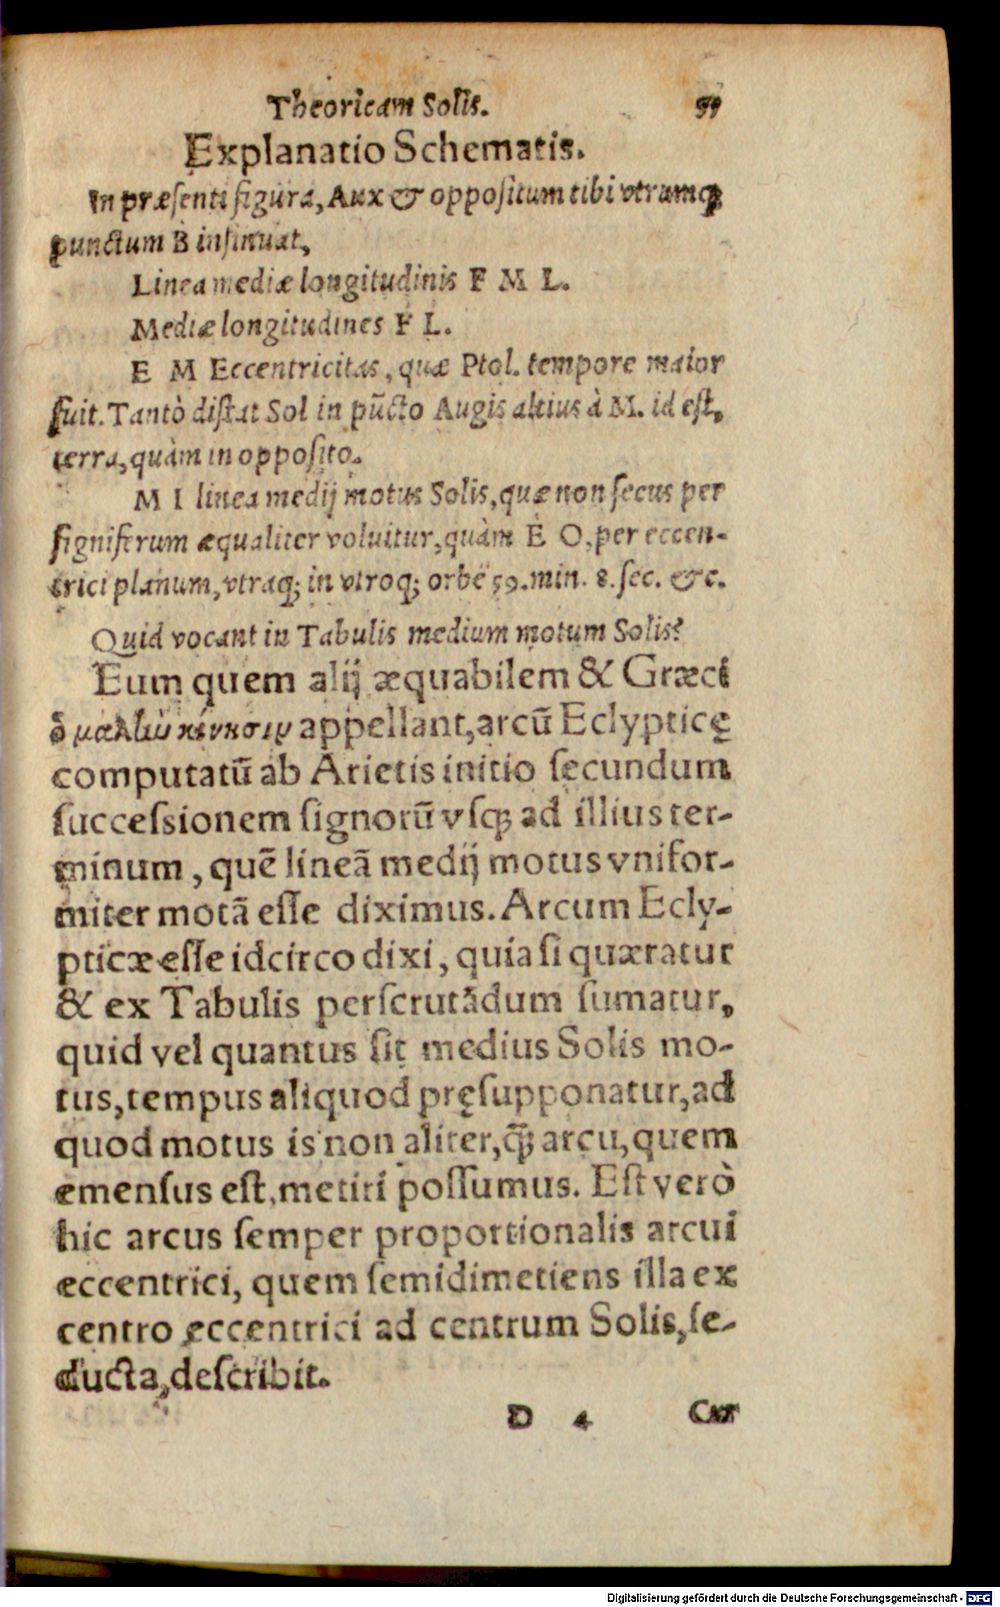 Theoricam Solis. 55
Explanatio Schematis.
In præsenti figura, Aux & oppositum tibi vtrumq;
punctum B insinuat,
Linea mediæ longitudinis F M L.
Mediæ longitudines F L.
E M Eccentricitas, quæ Ptol. tempore maior
fuit. Tantò distat Sol in pũcto Augis altius à M. id est,
terra, quàm in opposito.
M I linea medij motus Solis, quæ non secus per
signiferum æqualiter voluitur, quàm E O, per eccen-
trici planum, vtraq; in vtroq; orbe 59. min. 8. sec. &c.
Quid vocant in Tabulis medium motum Solis?
Eum quem alij æquabilem & Græci
appellant, arcũ Eclypticę
computatũ ab Arietis initio secundum
successionem signorũ vsq; ad illius ter-
minum, quẽ lineã medij motus vnifor-
miter motã esse diximus. Arcum Ecly-
pticæ esse idcirco dixi, quia si quæratur
& ex Tabulis perscrutãdum sumatur,
quid vel quantus sit medius Solis mo-
tus, tempus aliquod pręsupponatur, ad
quod motus is non aliter, q̃ arcu, quem
emensus est, metiri possumus. Est verò
hic arcus semper proportionalis arcui
eccentrici, quem semidimetiens illa ex
centro eccentrici ad centrum Solis, se-
ducta, describit.
D 4 Cur
Digitalisierung gefördert durch die Deutsche Forschungsgemeinschaft - DFG